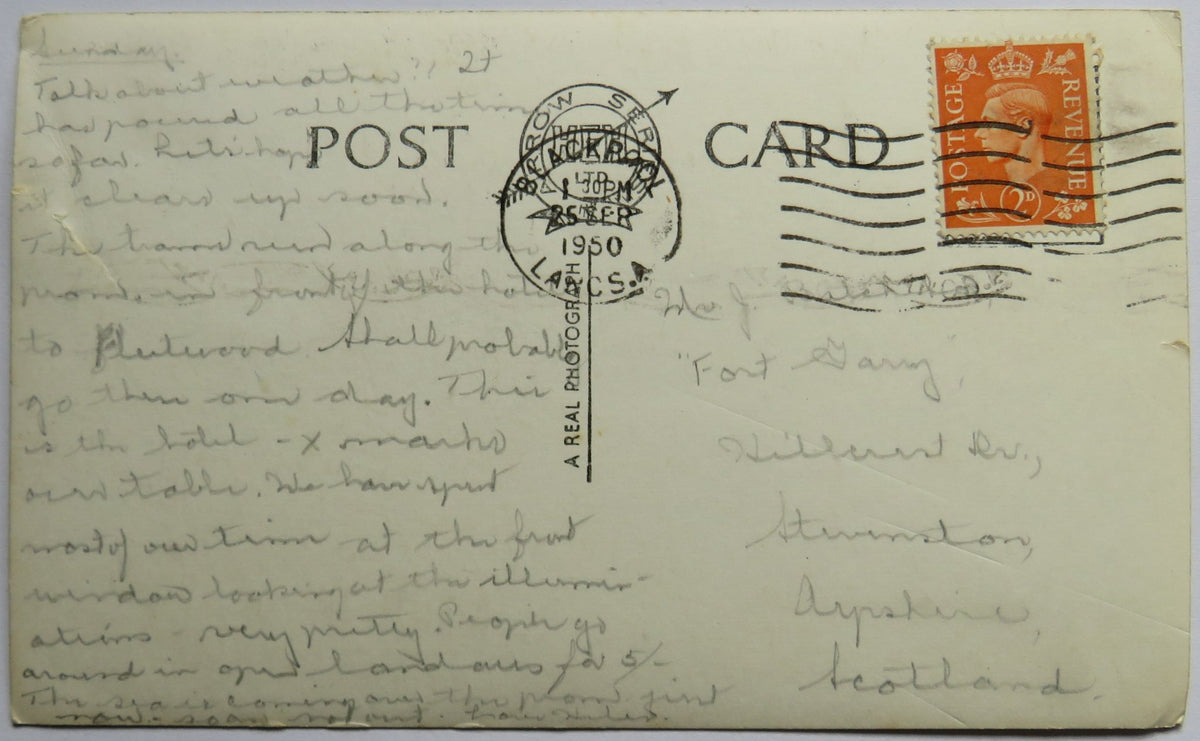 Sunday.
Talk about weather!! It
has poured all the time
so far. Let's hope
it clears up soon.
The trams run along the
prom. in front of the hotel
to Fleetwood Shall probably
go there one day. This
is the hotel - x marks
our table. We have spent
most of our time at the front
window looking at the illumin-
ations - very pretty. People go
around in open landaus for 5/-
The sea is coming over the prom just
now - so am not out. Love Helen.
POST CARD
BARROW SER
LTD
BLACKPOOL
1 30PM
25 SEP
1950
LANCS. A
A REAL PHOTOGRAPH
POSTAGE REVENUE
2D
Mr J.
"Fort Garry",
Hillcrest Dr.,
Stevenston,
Ayrshire,
Scotland.